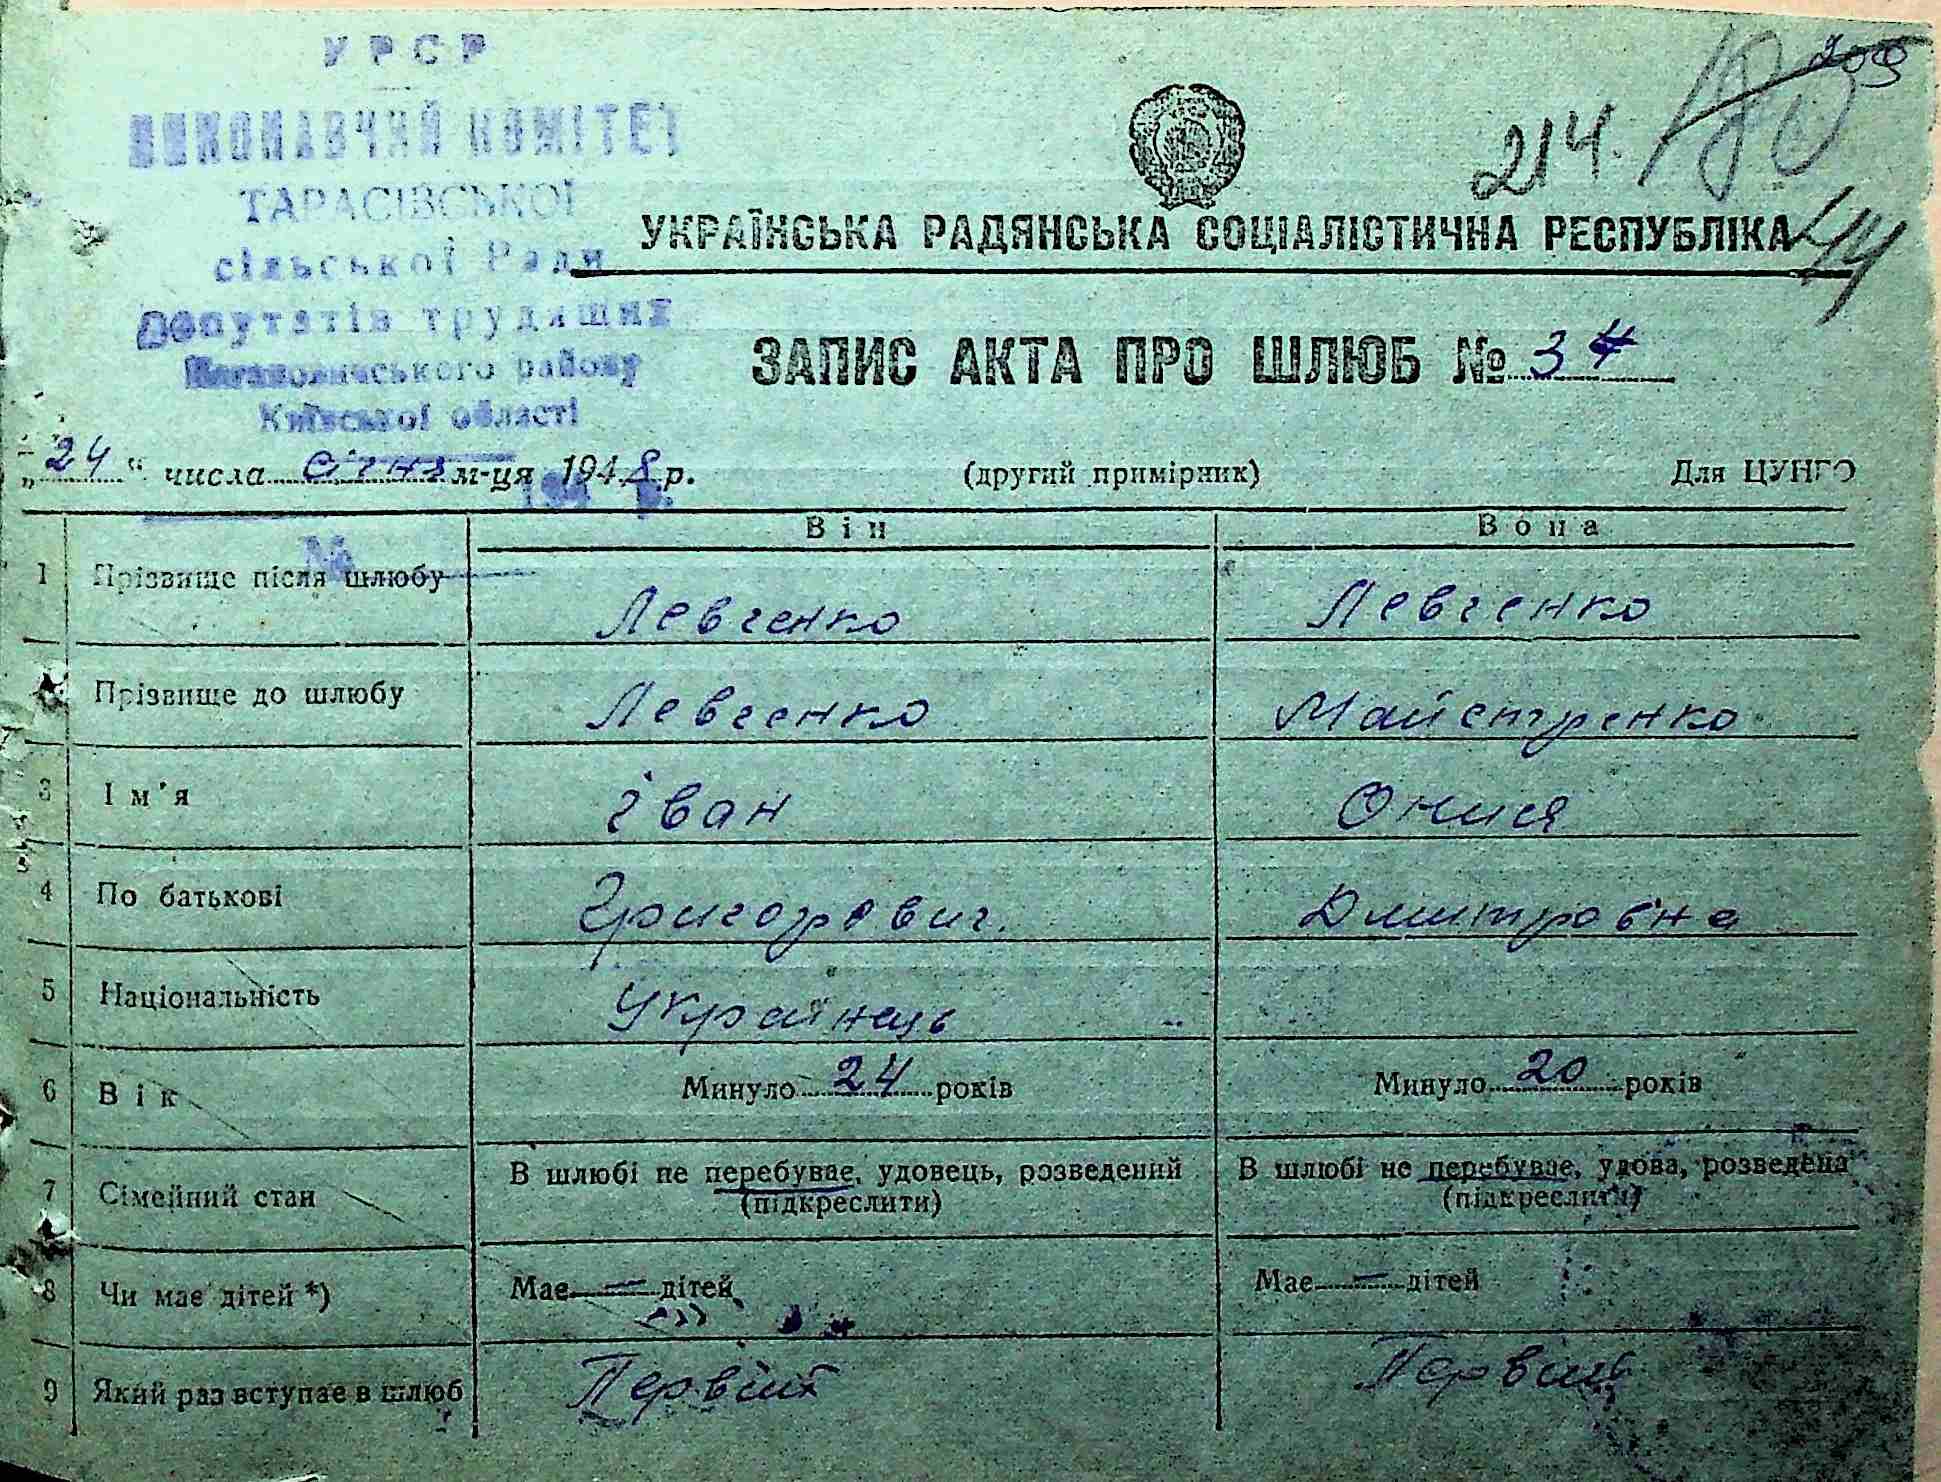 УРСР
ВИКОНАВЧИЙ КОМІТЕТ
ТАРАСІВСЬКОЇ
сільської Ради
Депутатів трудящих
району
Київської області
209
180
214.
44
УКРАЇНСЬКА РАДЯНСЬКА СОЦІАЛІСТИЧНА РЕСПУБЛІКА
ЗАПИС АКТА ПРО ШЛЮБ № 34
„24“ числа січня м-ця 1948 р. (другий примірник) Для ЦУНГО
194 р.
№
Він Вона
1 Прізвище після шлюбу Левченко Левченко
Прізвище до шлюбу Левченко Майстренко
3 Ім'я іван Онися
4 По батькові Григорович. Дмитровна
5 Національність Українець "
6 Вік Минуло 24 років Минуло 20 років
7 Сімейний стан В шлюбі не перебуває, удовець, розведений В шлюбі не перебуває, удова, розведена
(підкреслити) (підкреслити)
8 Чи має дітей *) Має — дітей Має — дітей
9 Який раз вступає в шлюб Первий Первий